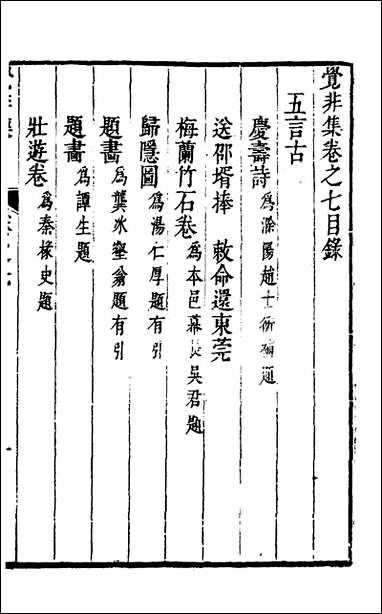 覺非集卷之七目錄
五言古
慶壽詩 為滁陽趙士衡題
送邵壻捧 敕命還東莞
梅蘭竹石卷 為本邑幕長吳君題
歸隱圖 為湯仁厚題有引
題畫 為龔氷壑翁題有引
題畫 為譚生題
壯遊卷 為秦椽史題